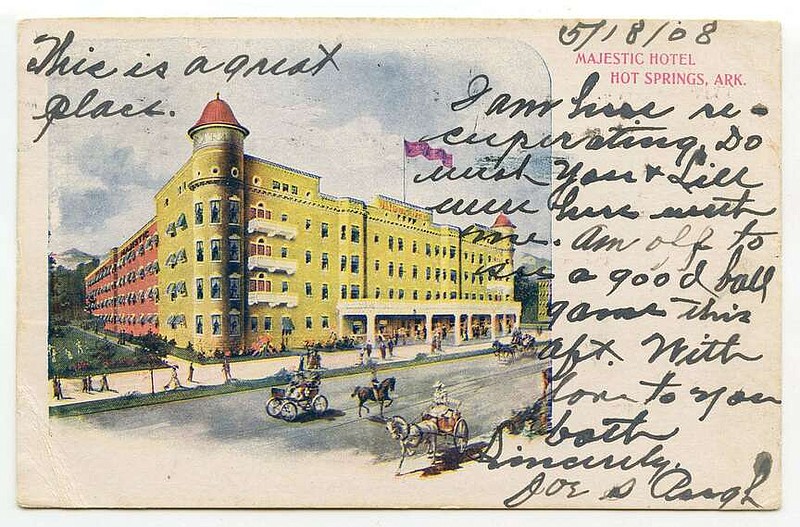 This is a great
place.
5/18/08
MAJESTIC HOTEL
HOT SPRINGS, ARK.
I am here re-
cuperating. Do
wish you &
were here with
me. Am off to
see a good ball
game this
aft. With
love to you
both
Sincerely,
Joe